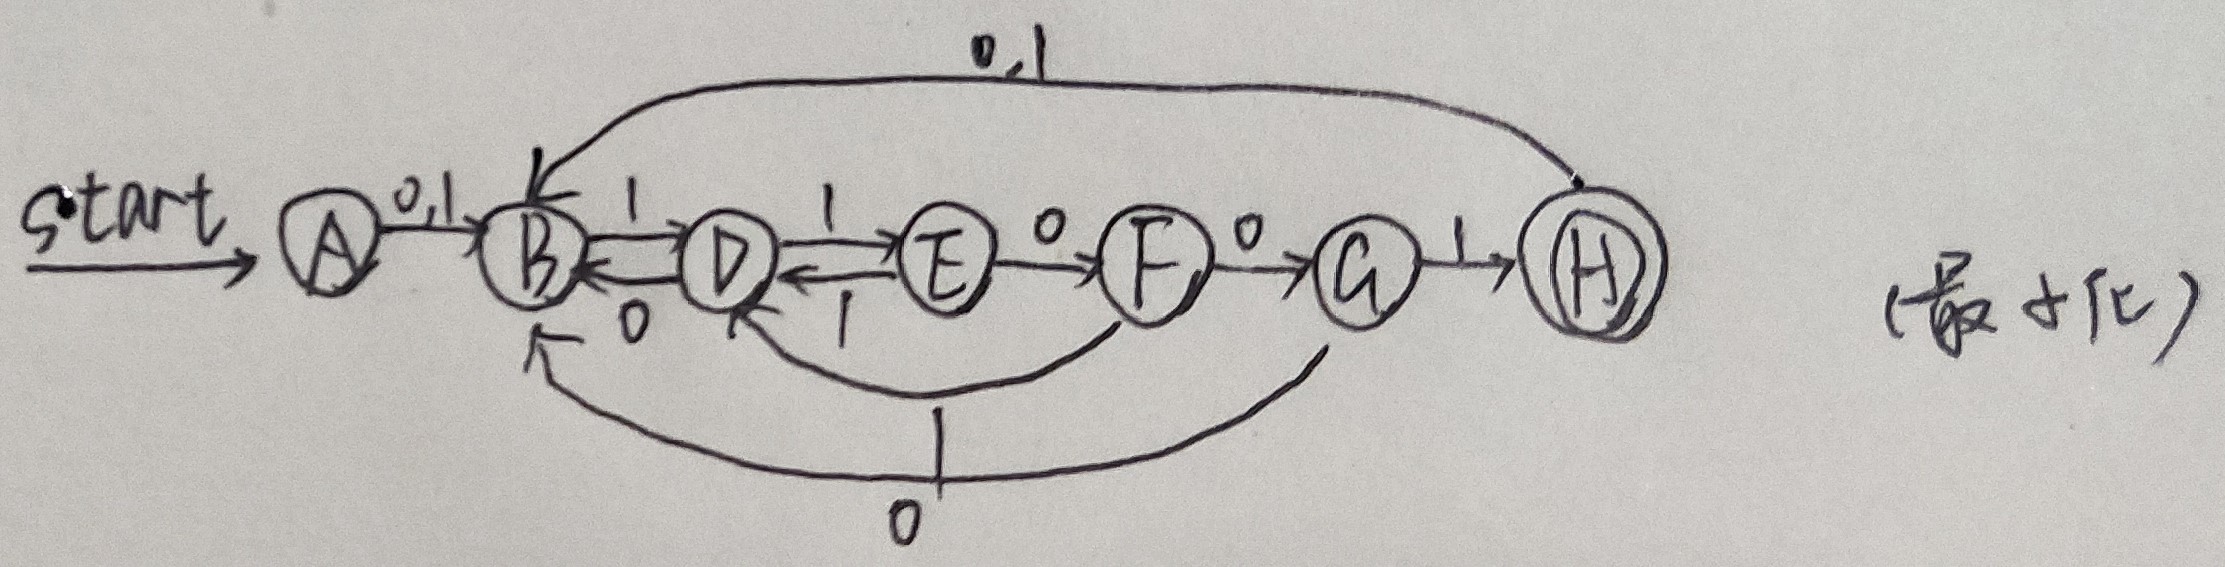 0,1
start A 0,1 B 1 D 1 E 0 F 0 G 1 H
0 1
1
0
(最小化)